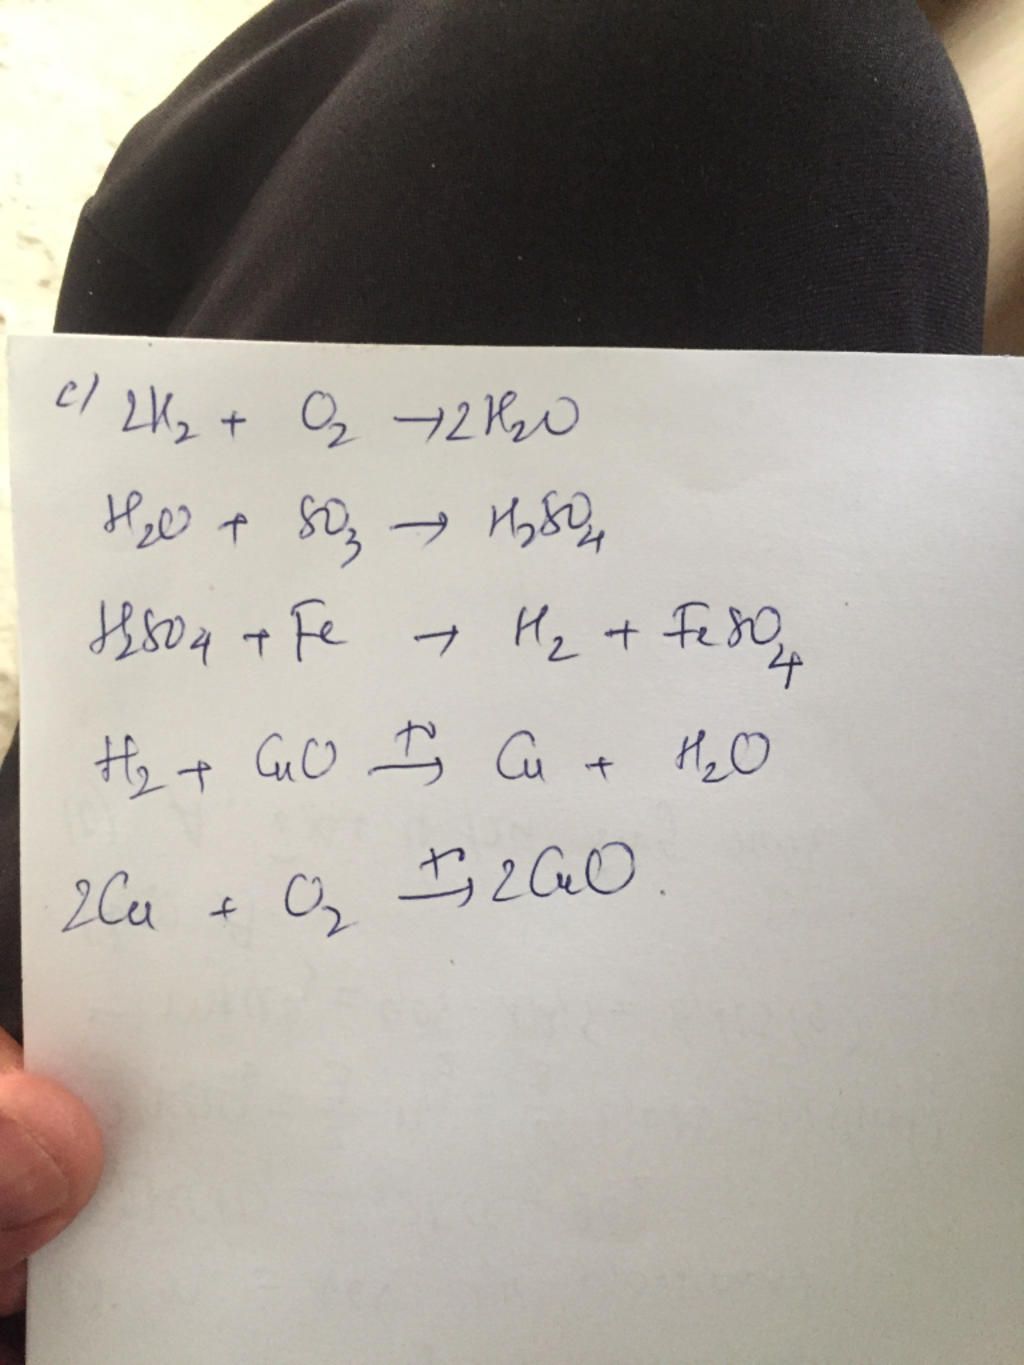 c) 2H₂ + O₂ → 2H₂O
H₂O + SO₃ → H₂SO₄
H₂SO₄ + Fe → H₂ + FeSO₄
H₂ + CuO →(t°) Cu + H₂O
2Cu + O₂ →(t°) 2CuO.